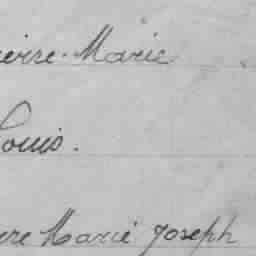 ierre-Marie
Louis.
rre Marie Joseph